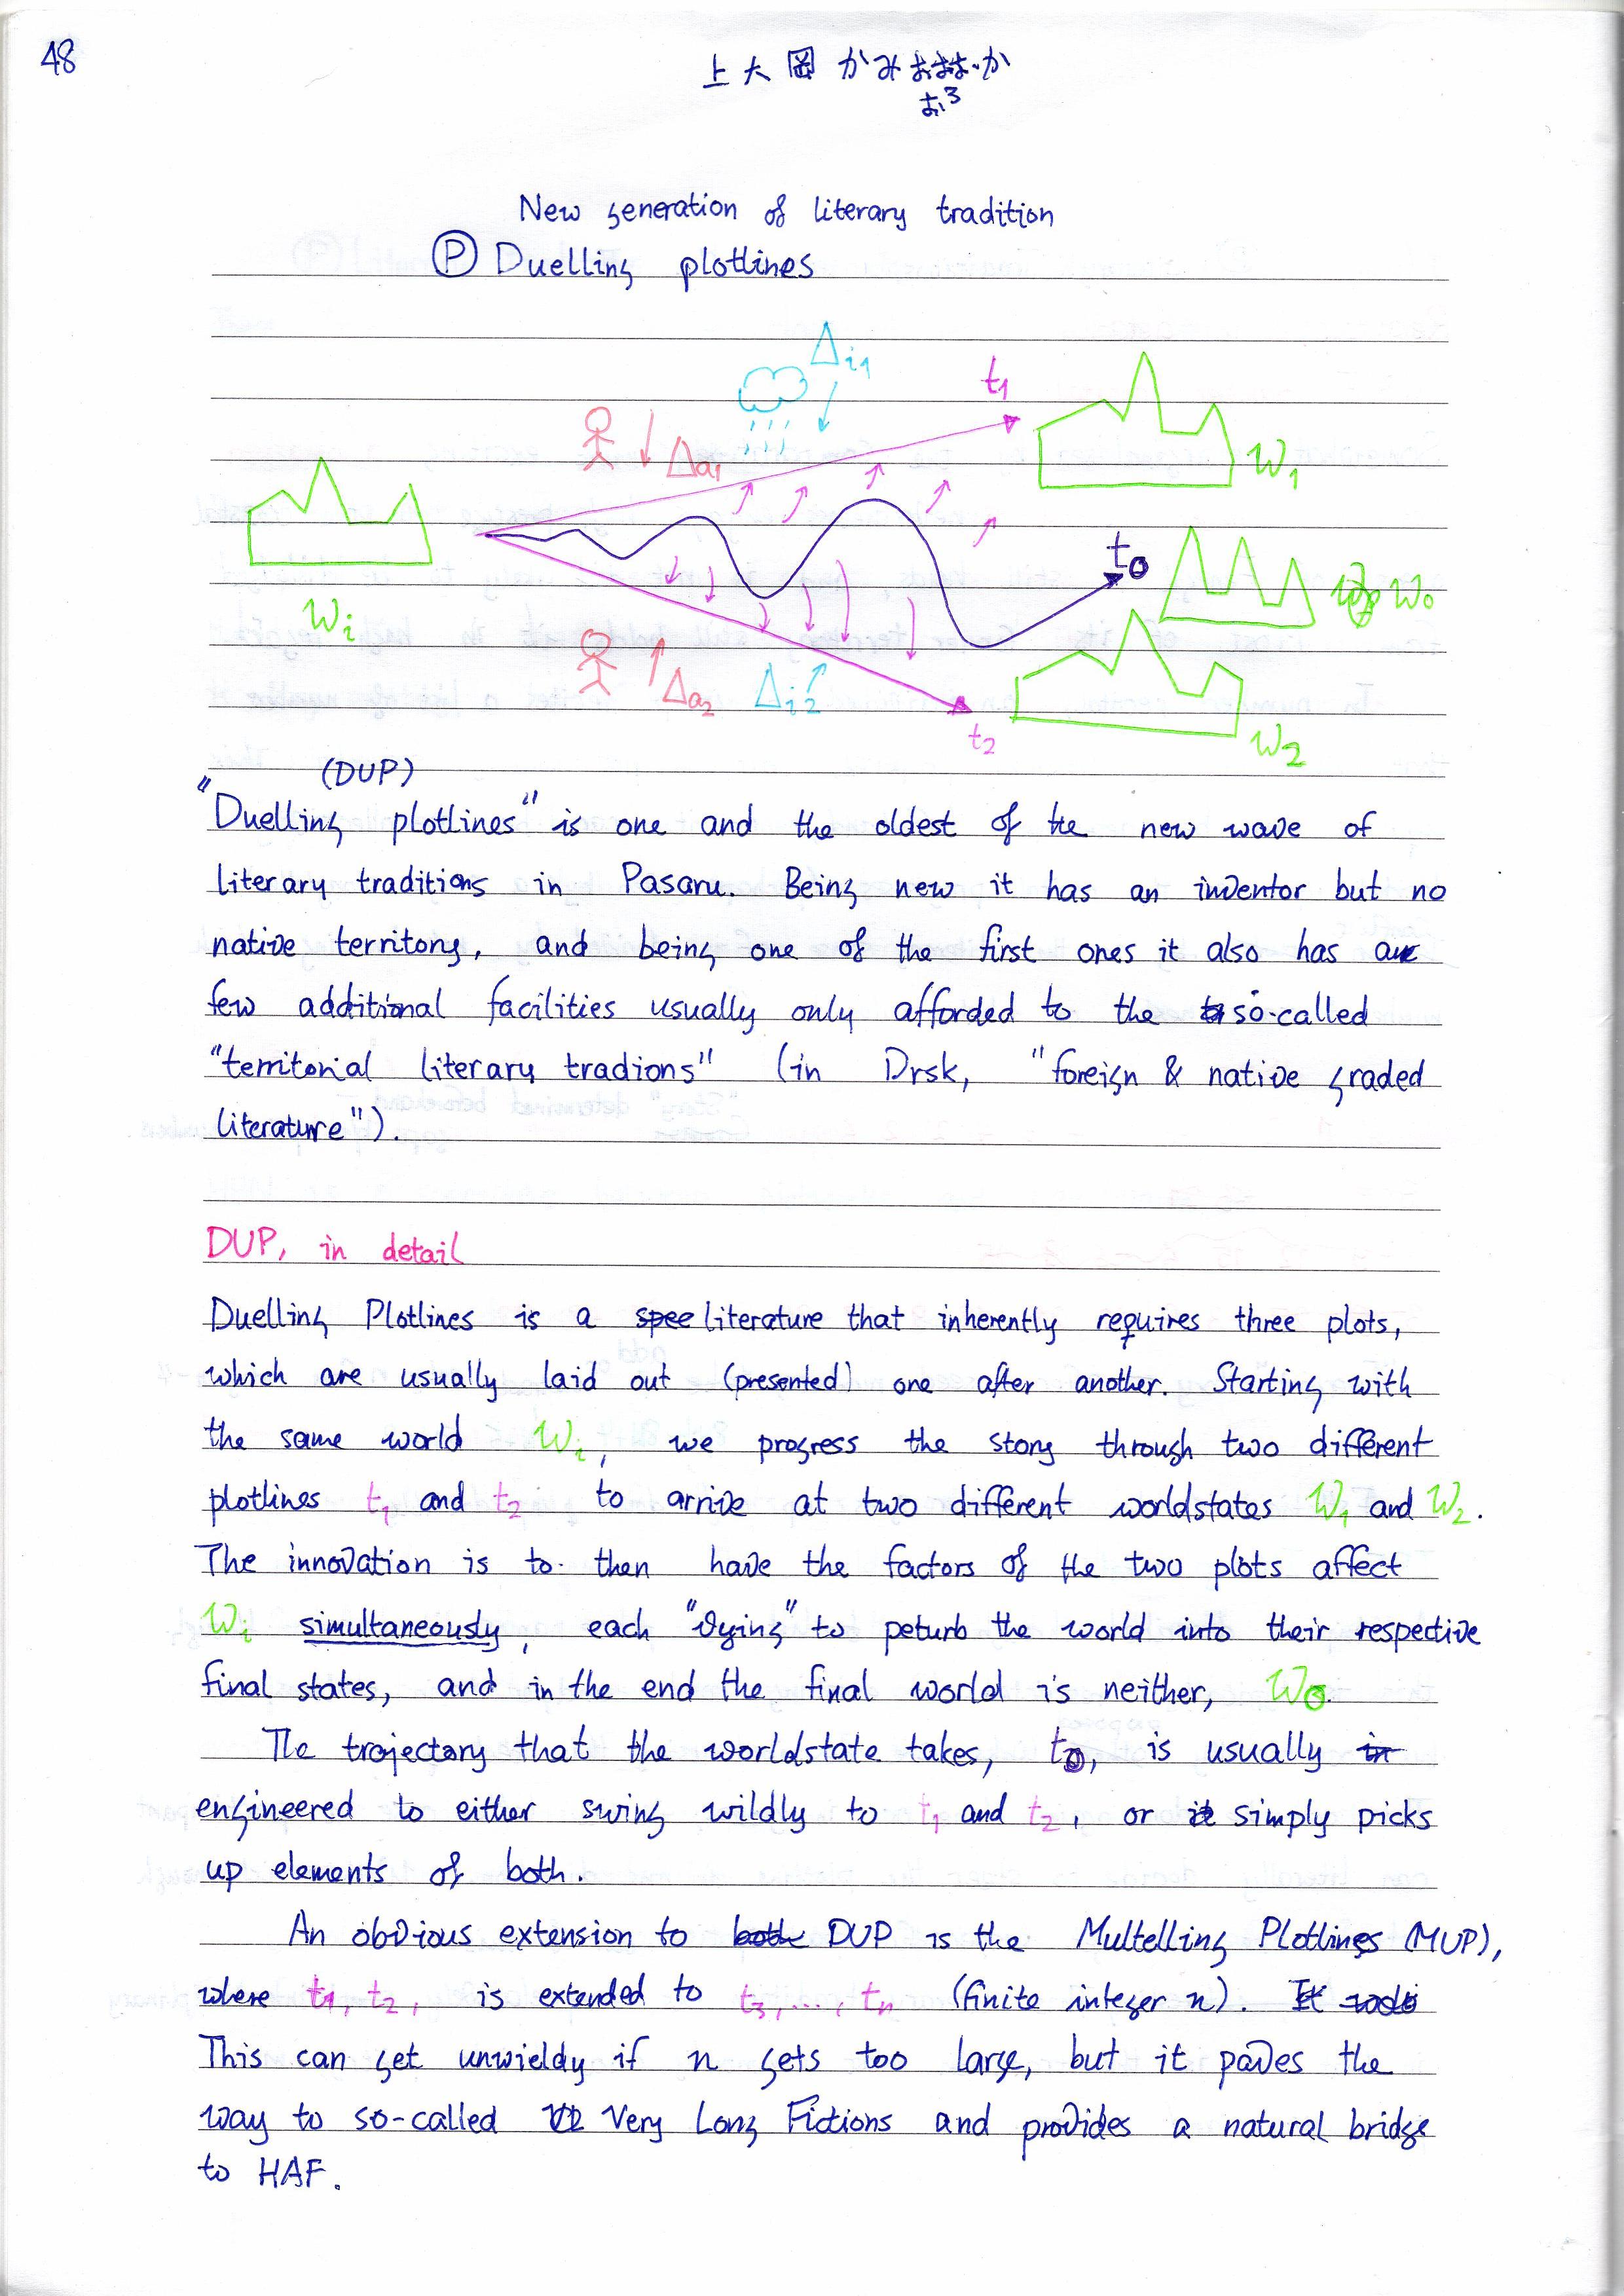 48
上大岡 かみおおおか
お3
New generation of literary tradition
Ⓟ Duelling plotlines
Δi1
t1
Δa1
W1
t0
W0
Wi
Δa2 Δi2
t2
W2
(DUP)
"Duelling plotlines" is one and the oldest of the new wave of
literary traditions in Pasaru. Being new it has an inventor but no
native territory, and being one of the first ones it also has a
few additional facilities usually only afforded to the so-called
"territorial literary tradions" (in Drsk, "foreign & native graded
literature").
DUP, in detail
Duelling Plotlines is a spee literature that inherently requires three plots,
which are usually laid out (presented) one after another. Starting with
the same world Wi, we progress the story through two different
plotlines t1 and t2 to arrive at two different worldstates W1 and W2.
The innovation is to then have the factors of the two plots affect
Wi simultaneously, each "vying" to peturb the world into their respective
final states, and in the end the final world is neither, W0.
The trajectory that the worldstate takes, t0, is usually in
engineered to either swing wildly to t1 and t2, or it simply picks
up elements of both.
An obvious extension to both DUP is the Multelling Plotlines (MUP),
where t1, t2, is extended to t3, ..., tn (finite integer n). It
This can get unwieldy if n gets too large, but it paves the
way to so-called Very Long Fictions and provides a natural bridge
to HAF.